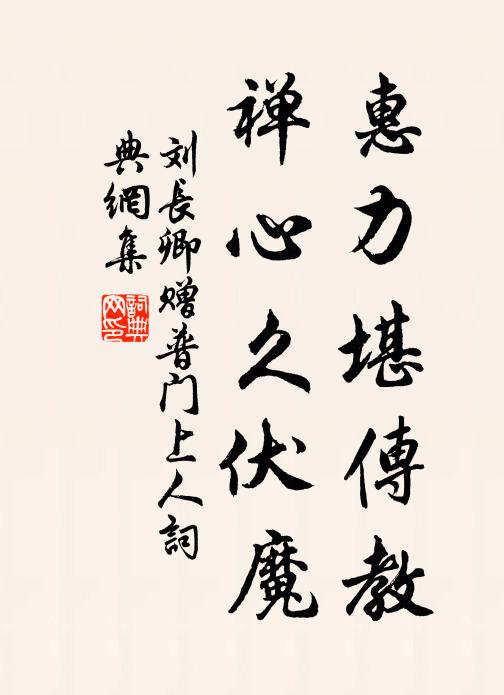 惠力堪傳教
禪心久伏魔
刘長卿赠普门上人詞
典網集
詞典
网印